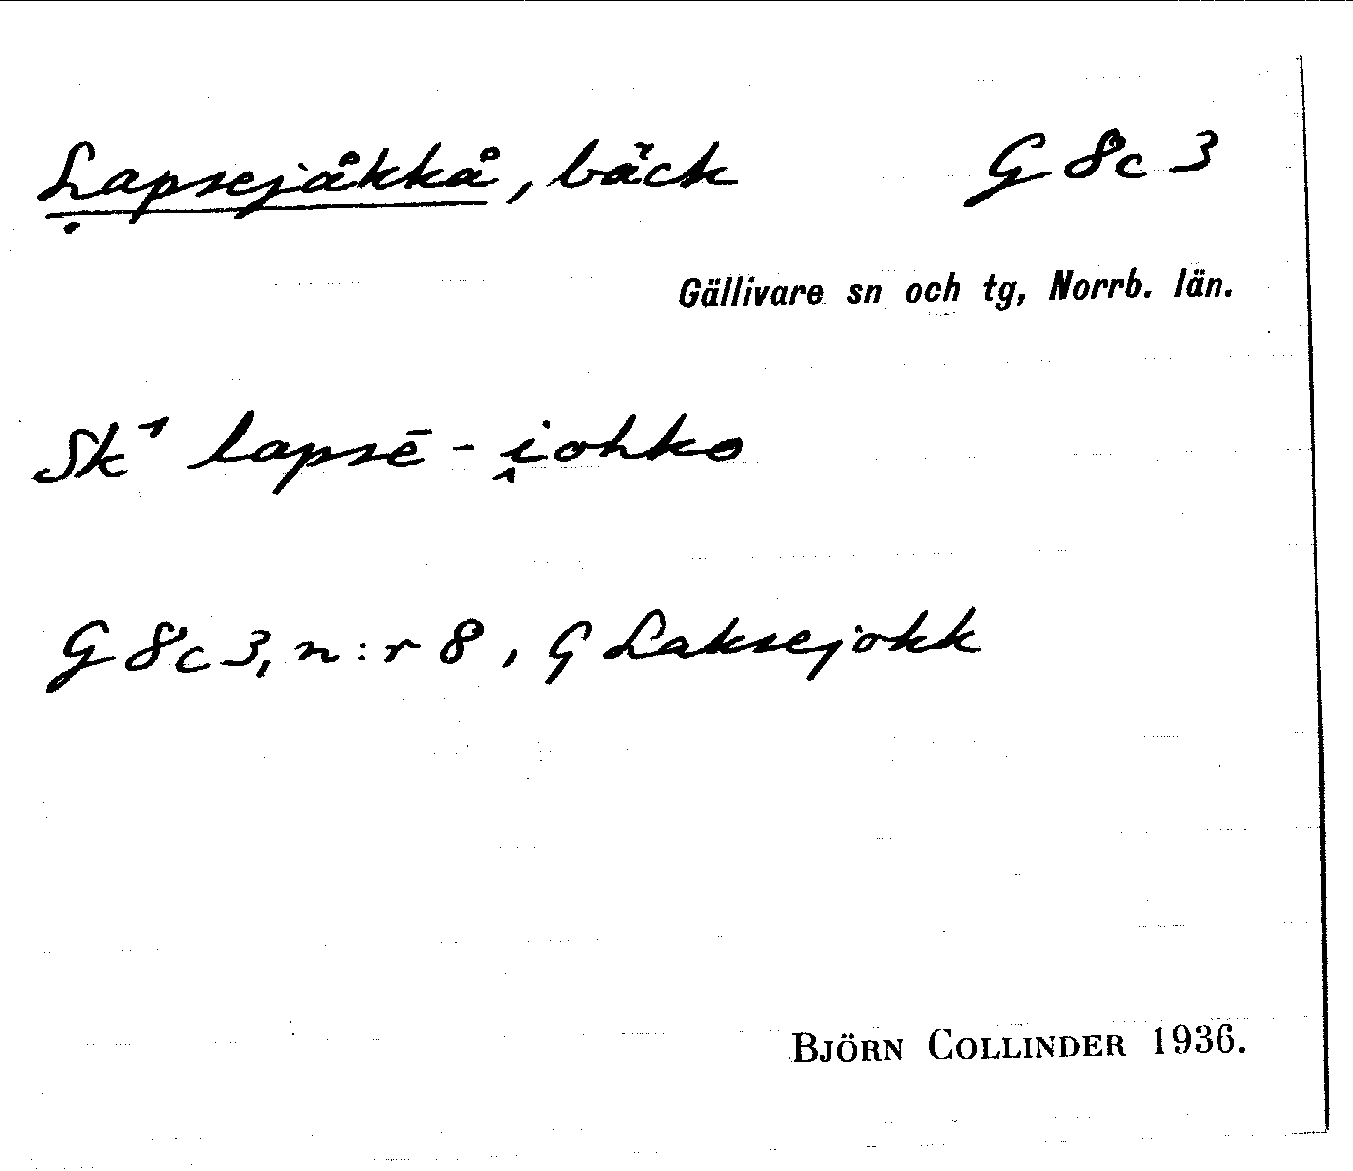 Lapsejåkkå, bäck G 8c 3
Gällivare sn och tg, Norrb. län.
Sk¹ lapsē - i̭ohko
G 8c 3, n:r 8, G Laksejokk
BJÖRN COLLINDER 1936.